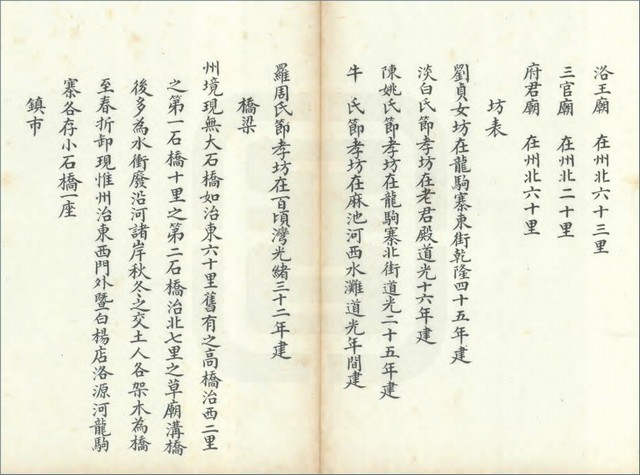 洛王廟 在州北六十三里
三官廟 在州北二十里
府君廟 在州北六十里
坊表
劉貞女坊在龍駒寨東街乾隆四十五年建
淡白氏節孝坊在老君殿道光十六年建
陳姚氏節孝坊在龍駒寨北街道光二十五年建
牛 氏節孝坊在麻池河西水灘道光年間建
羅周氏節孝坊在百頃灣光緒三十二年建
橋梁
州境現無大石橋如治東六十里舊有之高橋治西二里
之第一石橋十里之第二石橋治北七里之草廟溝橋
後多為水衝廢沿河諸岸秋冬之交土人各架木為橋
至春折卸現惟州治東西門外暨白楊店洛源河龍駒
寨各存小石橋一座
鎮市